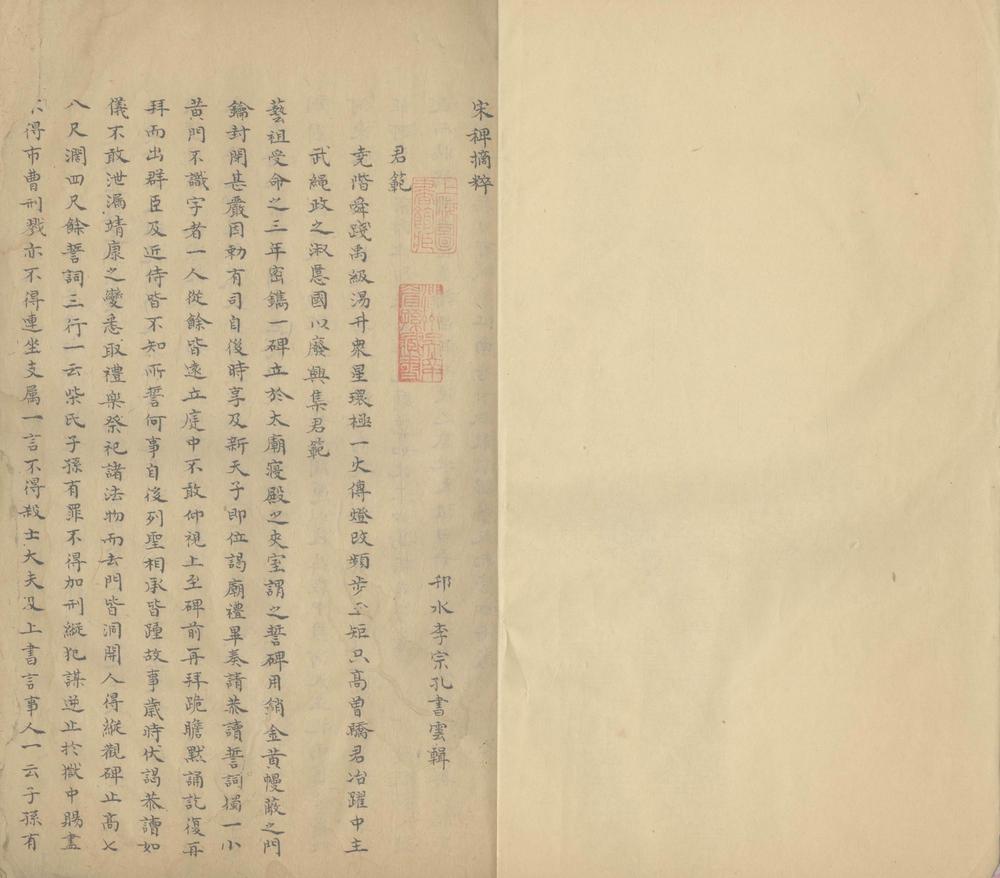 宋稗摘粹
邗水李宗孔書雲輯
君範
堯階舜踐禹級湯升衆星環極一火傳燈改頻步玉矩只高曾驕君冶躍中主
武繩政之淑慝國以廢興集君範
藝祖受命之三年密鐫一碑立於太廟寢殿之夾室謂之誓碑用銷金黃幔蔽之門
鑰封閉甚嚴因勅有司自後時享及新天子即位謁廟禮畢奏請恭讀誓詞獨一小
黃門不識字者一人從餘皆遠立庭中不敢仰視上至碑前再拜跪瞻默誦訖復再
拜而出群臣及近侍皆不知所誓何事自後列聖相承皆踵故事歲時伏謁恭讀如
儀不敢泄漏靖康之變悉取禮樂祭祀諸法物而去門皆洞開人得縱觀碑止高七
八尺濶四尺餘誓詞三行一云柴氏子孫有罪不得加刑縱犯謀逆止於獄中賜盡
不得市曹刑戮亦不得連坐支属一言不得殺士大夫及上書言事人一云子孫有